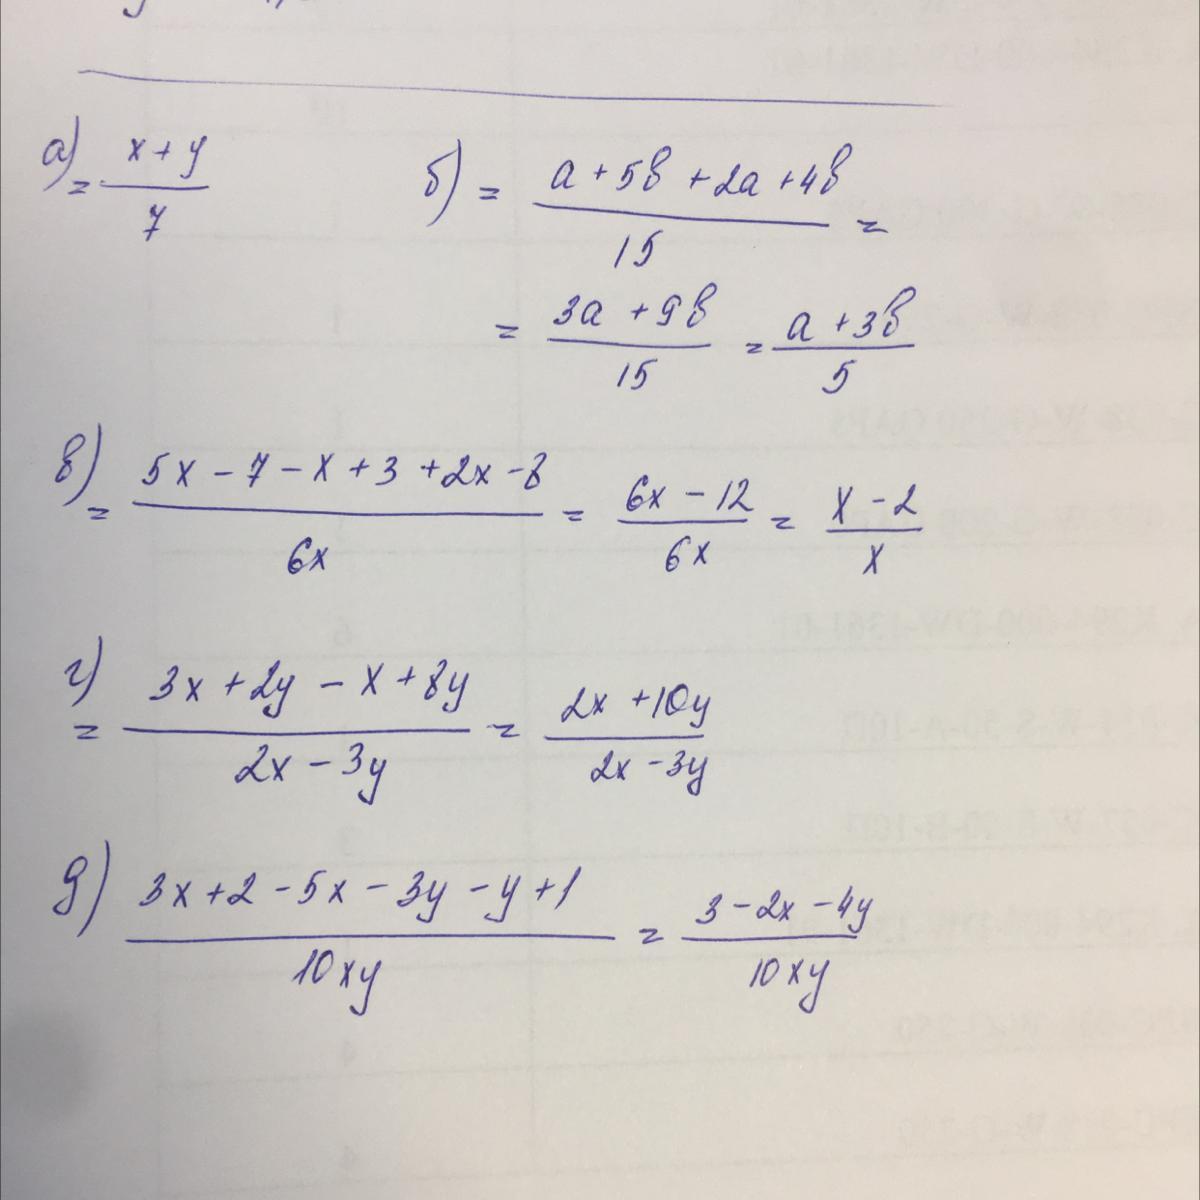 а) = (x + y)/7 б) = (a + 5b + 2a + 4b)/15 =
= (3a + 9b)/15 = (a + 3b)/5
в) = (5x - 7 - x + 3 + 2x - 8)/6x = (6x - 12)/6x = (x - 2)/x
г) = (3x + 2y - x + 8y)/(2x - 3y) = (2x + 10y)/(2x - 3y)
д) (3x + 2 - 5x - 3y - y + 1)/10xy = (3 - 2x - 4y)/10xy